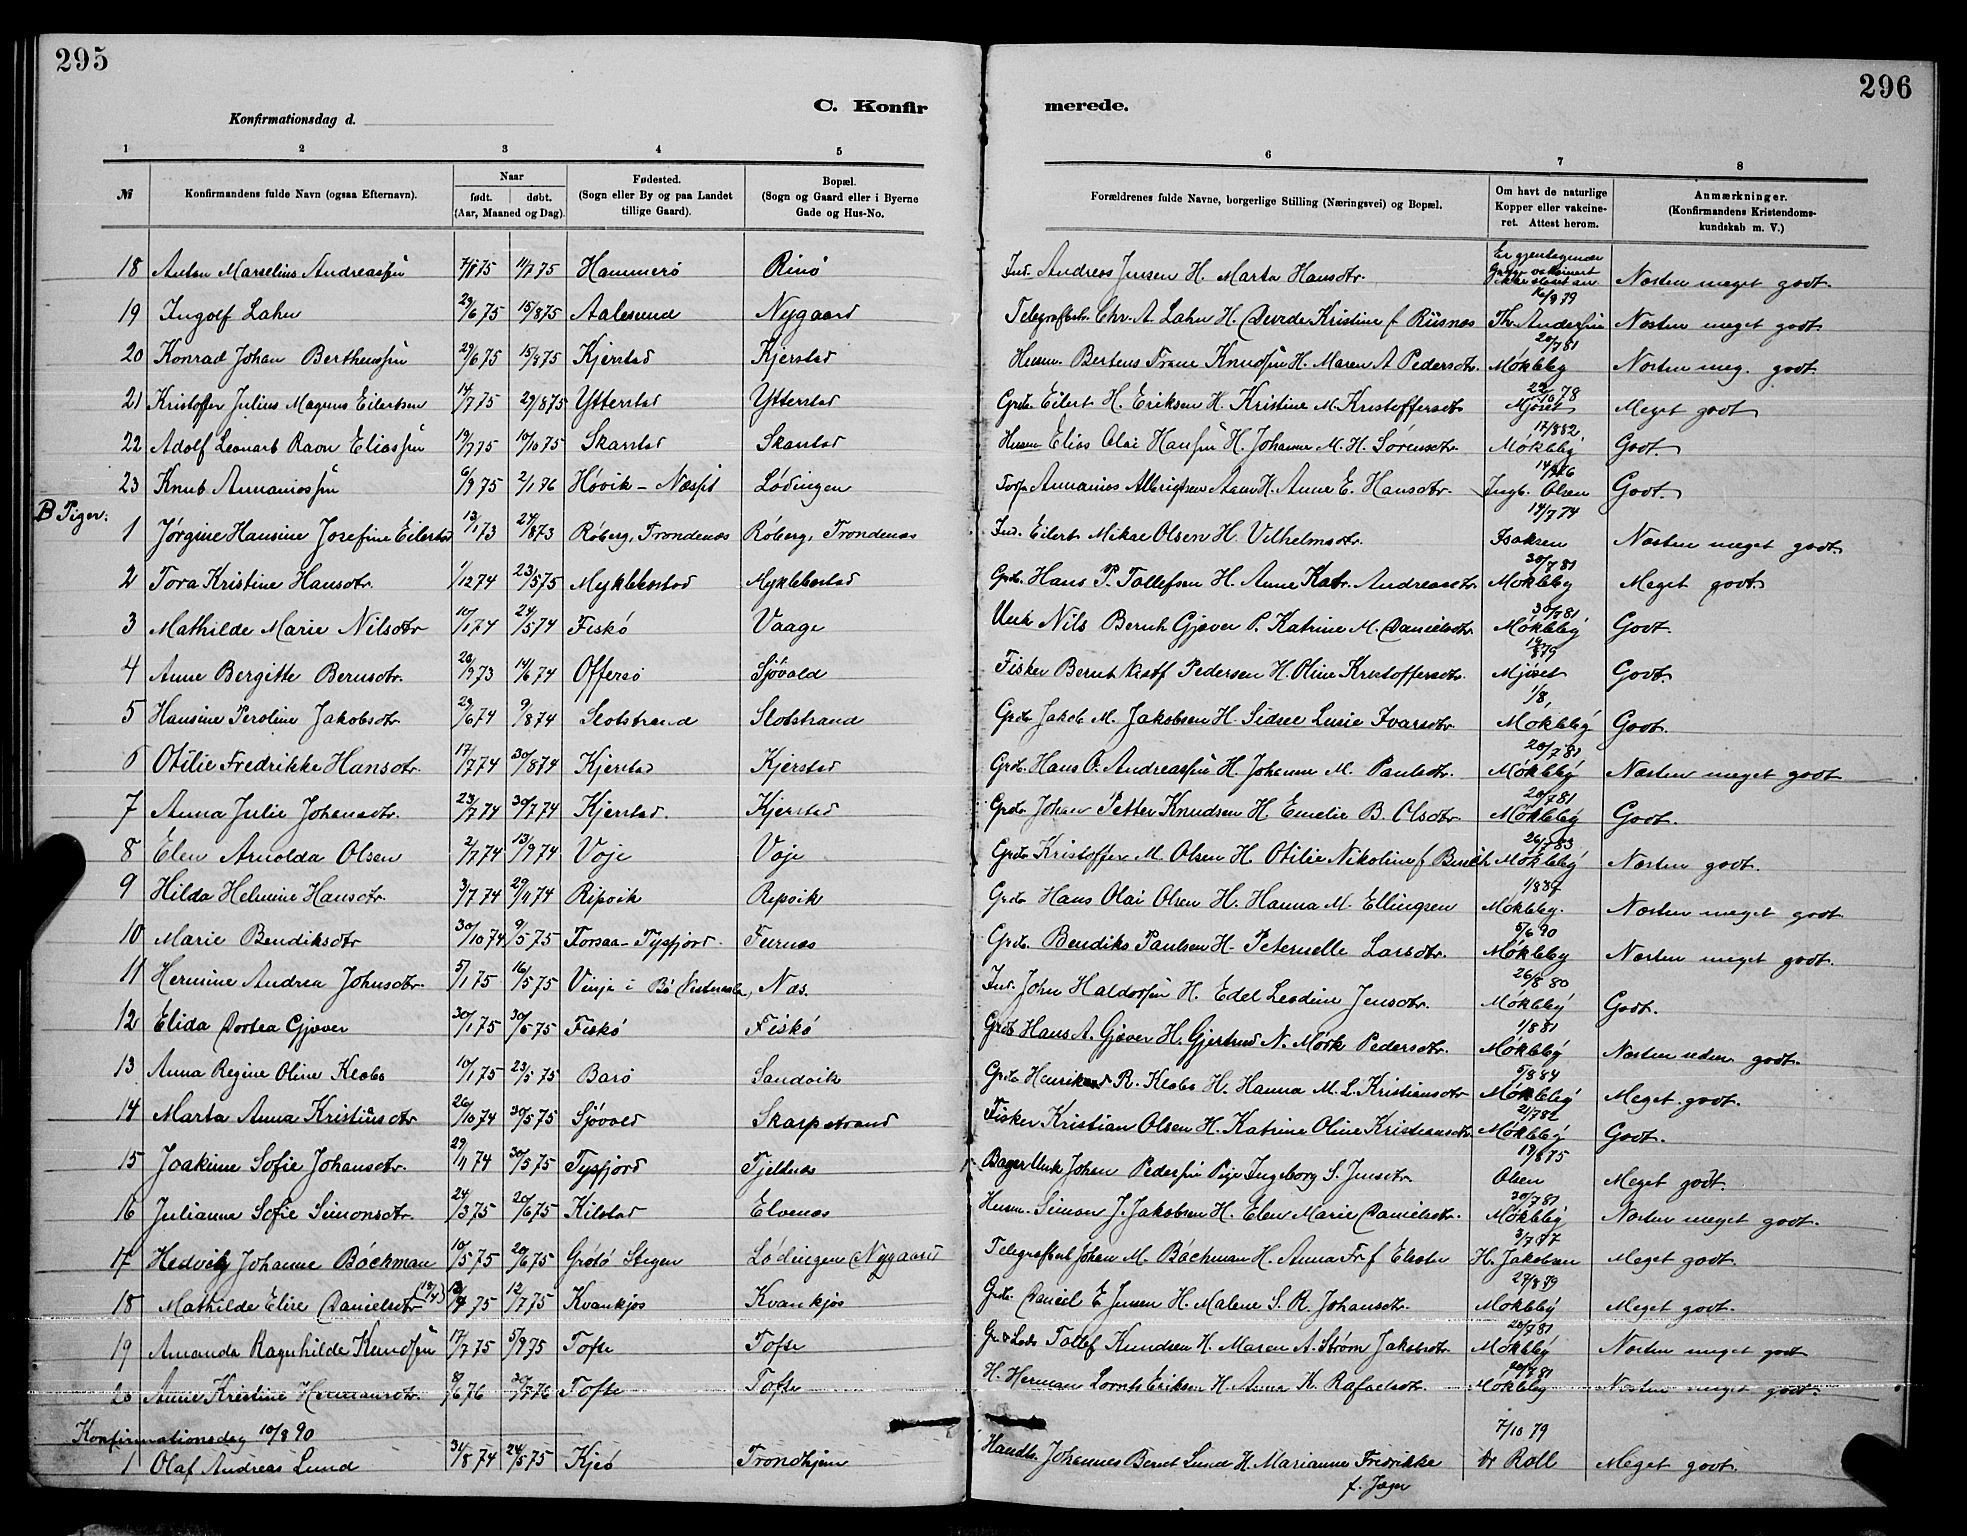 295
296
C. Konfirmerede.
Konfirmationsdag d.
1 2 3 4 5 6 7 8
№ Konfirmandens fulde Navn (ogsaa Efternavn). Naar født. døbt. (Aar, Maaned og Dag). Fødested. (Sogn eller By og paa Landet tillige Gaard). Bopæl. (Sogn og Gaard eller i Byerne Gade og Hus-No. Forældrenes fulde Navne, borgerlige Stilling (Næringsvei) og Bopæl. Om havt de naturlige Kopper eller vakcineret. Attest herom. Anmærkninger. (Konfirmandens Kristendomskundskab m. V.)
18 Anton Marselius Andreassen 7/8 75 11/7 75 Hammerö Rinö Ind. Andreas Jensen H. Marta Hansdtr. 16/9 79 Næsten meget godt.
19 Ingolf Lahn 29/6 75 15/8 75 Aalesund Nygaard Telegrafbest. Chr. A. Lahn H. Kristine f Riisnæs Th. Andersen Næsten meget godt
20 Konrad Johan Berthenssen 29/6 75 15/8 75 Kjerstad Kjerstad Husm. Bertens Knudsen H. Maren A Pedersdtr. 20/7 81 Møkleby Næsten meg. godt
21 Kristoffer Julius Magnus Eilertsen 14/7 75 29/8 75 Ytterstad Ytterstad Grdb. Eilert H. Eriksen H. Kristine M. Kristoffersdtr 22/10 78 Mjöset Meget godt
22 Adolf Leonard Ravn Eliassen 19/7 75 10/10 75 Skanstad Skanstad Husm Elias Olai Hansen H. Johanna M. H. Sörensdtr. 17/8 82 Møkleby Godt.
23 Knud Annaniassen 6/9 75 2/1 76 Hövik - Lödingen Annanias Albrigtsen H. Anne E. Hansdtr. Ingb. Olsen Godt.
B Piger.
1 Jörgine Hansine Josefine Eilertsd 13/1 73 24/8 73 Röberg, Trondenæs Röberg, Trondenæs Ind. Eilert Mikal Olsen H. Vilhelmsdtr. 14/7 74 Isaksen Næsten meget godt
2 Tora Kristine Hansdtr. 1/12 74 23/5 75 Myklebostad Myklebostad Grdb. Hans P. Tollefsen H. Anne Katr. Andreasdtr 30/7 81 Møkleby Meget godt
3 Mathilde Marie Nilsdtr 10/1 74 24/5 74 Fiskö Vaage Unk Nils Bernh Gjæver P. Katrine M. Danielsdtr. 30/7 81 Møkleby Godt.
4 Anne Bergitte Berntsdtr. 20/9 73 14/6 74 Offersö Sjövold Fisker Bernt Kristf Pedersen H. Oline Kristoffersdtr. Mjöset Godt.
5 Hansine Peroline Jakobsdtr 29/6 74 9/8 74 Slotstrand Slotstrand Grdb Jakob M. Jakobsen H. Sidsel Lusie Ivarsdtr. Møkleby Godt.
6 Otilie Fredrikke Hansdtr. 17/7 74 30/8 74 Kjerstad Kjerstad Grdb. Hans O. Andreassen H. Johanna M. Paulsdtr. 20/7 81 Møkleby Næsten meget godt
7 Anna Julie Johansdtr. 23/7 74 30/7 74 Kjerstad. Kjerstad Grdb Johan Petter Knudsen H. Emelie B. Olsdtr. 20/7 81 Møkleby Godt.
8 Elen Arnolda Olsen 2/7 74 13/9 74 Voje Voje Grdb Kristoffer M. Olsen H. Otilie Nikoline f 26/7 83 Møkleby Næsten godt.
9 Hilda Helmine Hansdtr. 3/7 74 29/11 74 Ripvik Ripvik Grdb Hans Olai Olsen H. Hanna M. Ellingsen Møkleby. Næsten meget godt
10 Marie Bendiksdtr 30/10 74 9/5 75 Forsaa - Tysfjord Furnæs Grdb. Bendiks Paulsen H. Peternelle Larsdtr. 5/6 90 Møkleby Næsten meget godt.
11 Hermine Andrea Johnsdtr. 5/1 75 16/5 75 Vinje i Bö (Vesteraalen) Næs. Ind. John Haldorsen H. Edel Leodine Jensdtr. 26/8 80 Møkleby Godt.
12 Elida Dortea Gjæver 30/1 75 30/5 75 Fiskö Fiskö Grdb Hans A. Gjæver H. Gjertrud N. Mörk Pedersdtr. 1/8 81 Møkleby Næsten uden godt.
13 Anna Regine Oline Klæbo 10/1 75 23/5 75 Barö Sandvik Grdb Henrik R. Klæbo H. Hanna M. L. Kristiansdtr 5/8 84 Møkleby Meget godt.
14 Marta Anna Kristiansdtr 26/10 74 30/5 75 Sjövold Skarpstrand Fisker Kristian Olsen H. Katrine Oline Kristiansdtr. 21/7 82 Møkleby Godt.
15 Joakime Sofie Johansdtr. 29/11 74 30/5 75 Tysfjord Tjeldnæs Unk Johan Pedersen Pige Ingeborg S. Jensdtr. 19/8 75 Olsen Meget godt.
16 Julianne Sofie Simonsdtr. 24/3 75 20/6 75 Kilstad Elvenæs Husm. Simon J. Jakobsen H. Elen Marie Danielsdtr. 30/7 81 Møkleby Næsten meget godt.
17 Hedvig Johanne Böckman 10/5 75 20/6 75 Grötö Stegen Lödingen Nygaard Telegrafbest Johan M. Böckman H. Anna Fr f 3/7 77 H. Jakobsen Meget godt.
18 Mathilde Elise Danielsdtr (13/4) 13/4 75 12/7 75 Kvankjos Kvankjos Grdb. Daniel E Jensen H. Malene S. R. Johansdtr. 27/8 79 Møkleby Meget godt.
19 Amanda Ragnhilde Knudsen 17/7 75 5/9 75 Tofte Tofte Tollef Knudsen H. Maren A. Ström Jakobsdtr. 20/7 81 Møkleby Næsten meget godt
20 Anne Kristine Hermansdtr. 8/6 76 30/8 76 Tofte Tofte H. Herman Lornts Eriksen H. Anna K. Rafaelsdtr. 20/7 81 Møkleby Næsten meget godt.
Konfirmationsdag 10/8 90
1 Olaf Andreas Lund 31/8 74 24/5 75 Kjeö Trondhjem Handls. Johannes Bernt Lund H. Marianne Fredrikke f. Jæger 7/10 79 Dr Roll Meget godt.